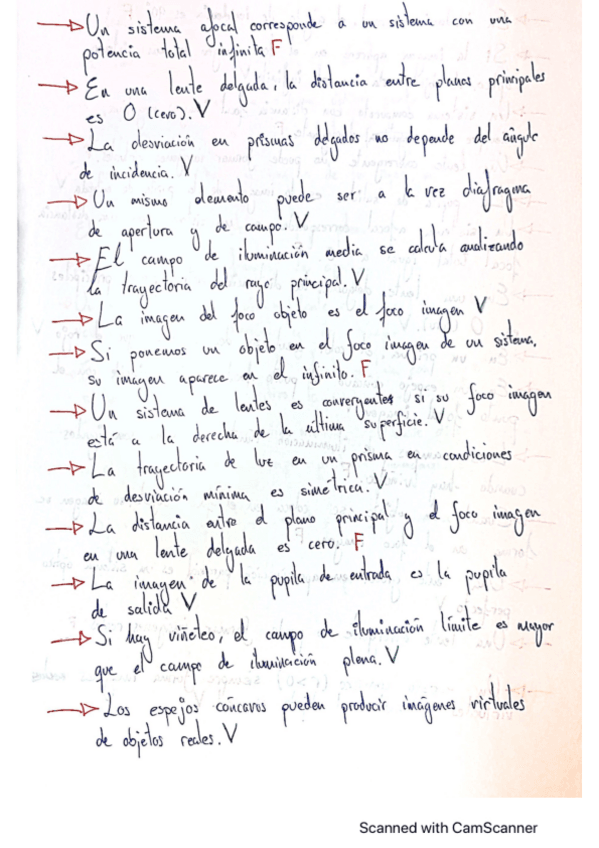 → Un sistema afocal corresponde a un sistema con una
potencia total infinita F
→ En una lente delgada, la distancia entre planos principales
es 0 (cero). V
→ La desviación en prismas delgados no depende del ángulo
de incidencia. V
→ Un mismo elemento puede ser a la vez diafragma
de apertura y de campo. V
→ El campo de iluminación media se calcula analizando
la trayectoria del rayo principal. V
→ La imagen del foco objeto es el foco imagen V
→ Si ponemos un objeto en el foco imagen de un sistema,
su imagen aparece en el infinito. F
→ Un sistema de lentes es convergente si su foco imagen
está a la derecha de la última superficie. V
→ La trayectoria de luz en un prisma en condiciones
de desviación mínima es simétrica. V
→ La distancia entre el plano principal y el foco imagen
en una lente delgada es cero. F
→ La imagen de la pupila de entrada es la pupila
de salida V
→ Si hay viñeteo, el campo de iluminación límite es mayor
que el campo de iluminación plena. V
→ Los espejos cóncavos pueden producir imágenes virtuales
de objetos reales. V
Scanned with CamScanner